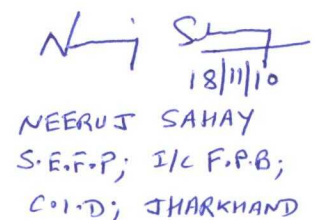 18/11/10
NEERUJ SAHAY
S.E.F.P; I/C F.P.B;
C.I.D; JHARKHAND